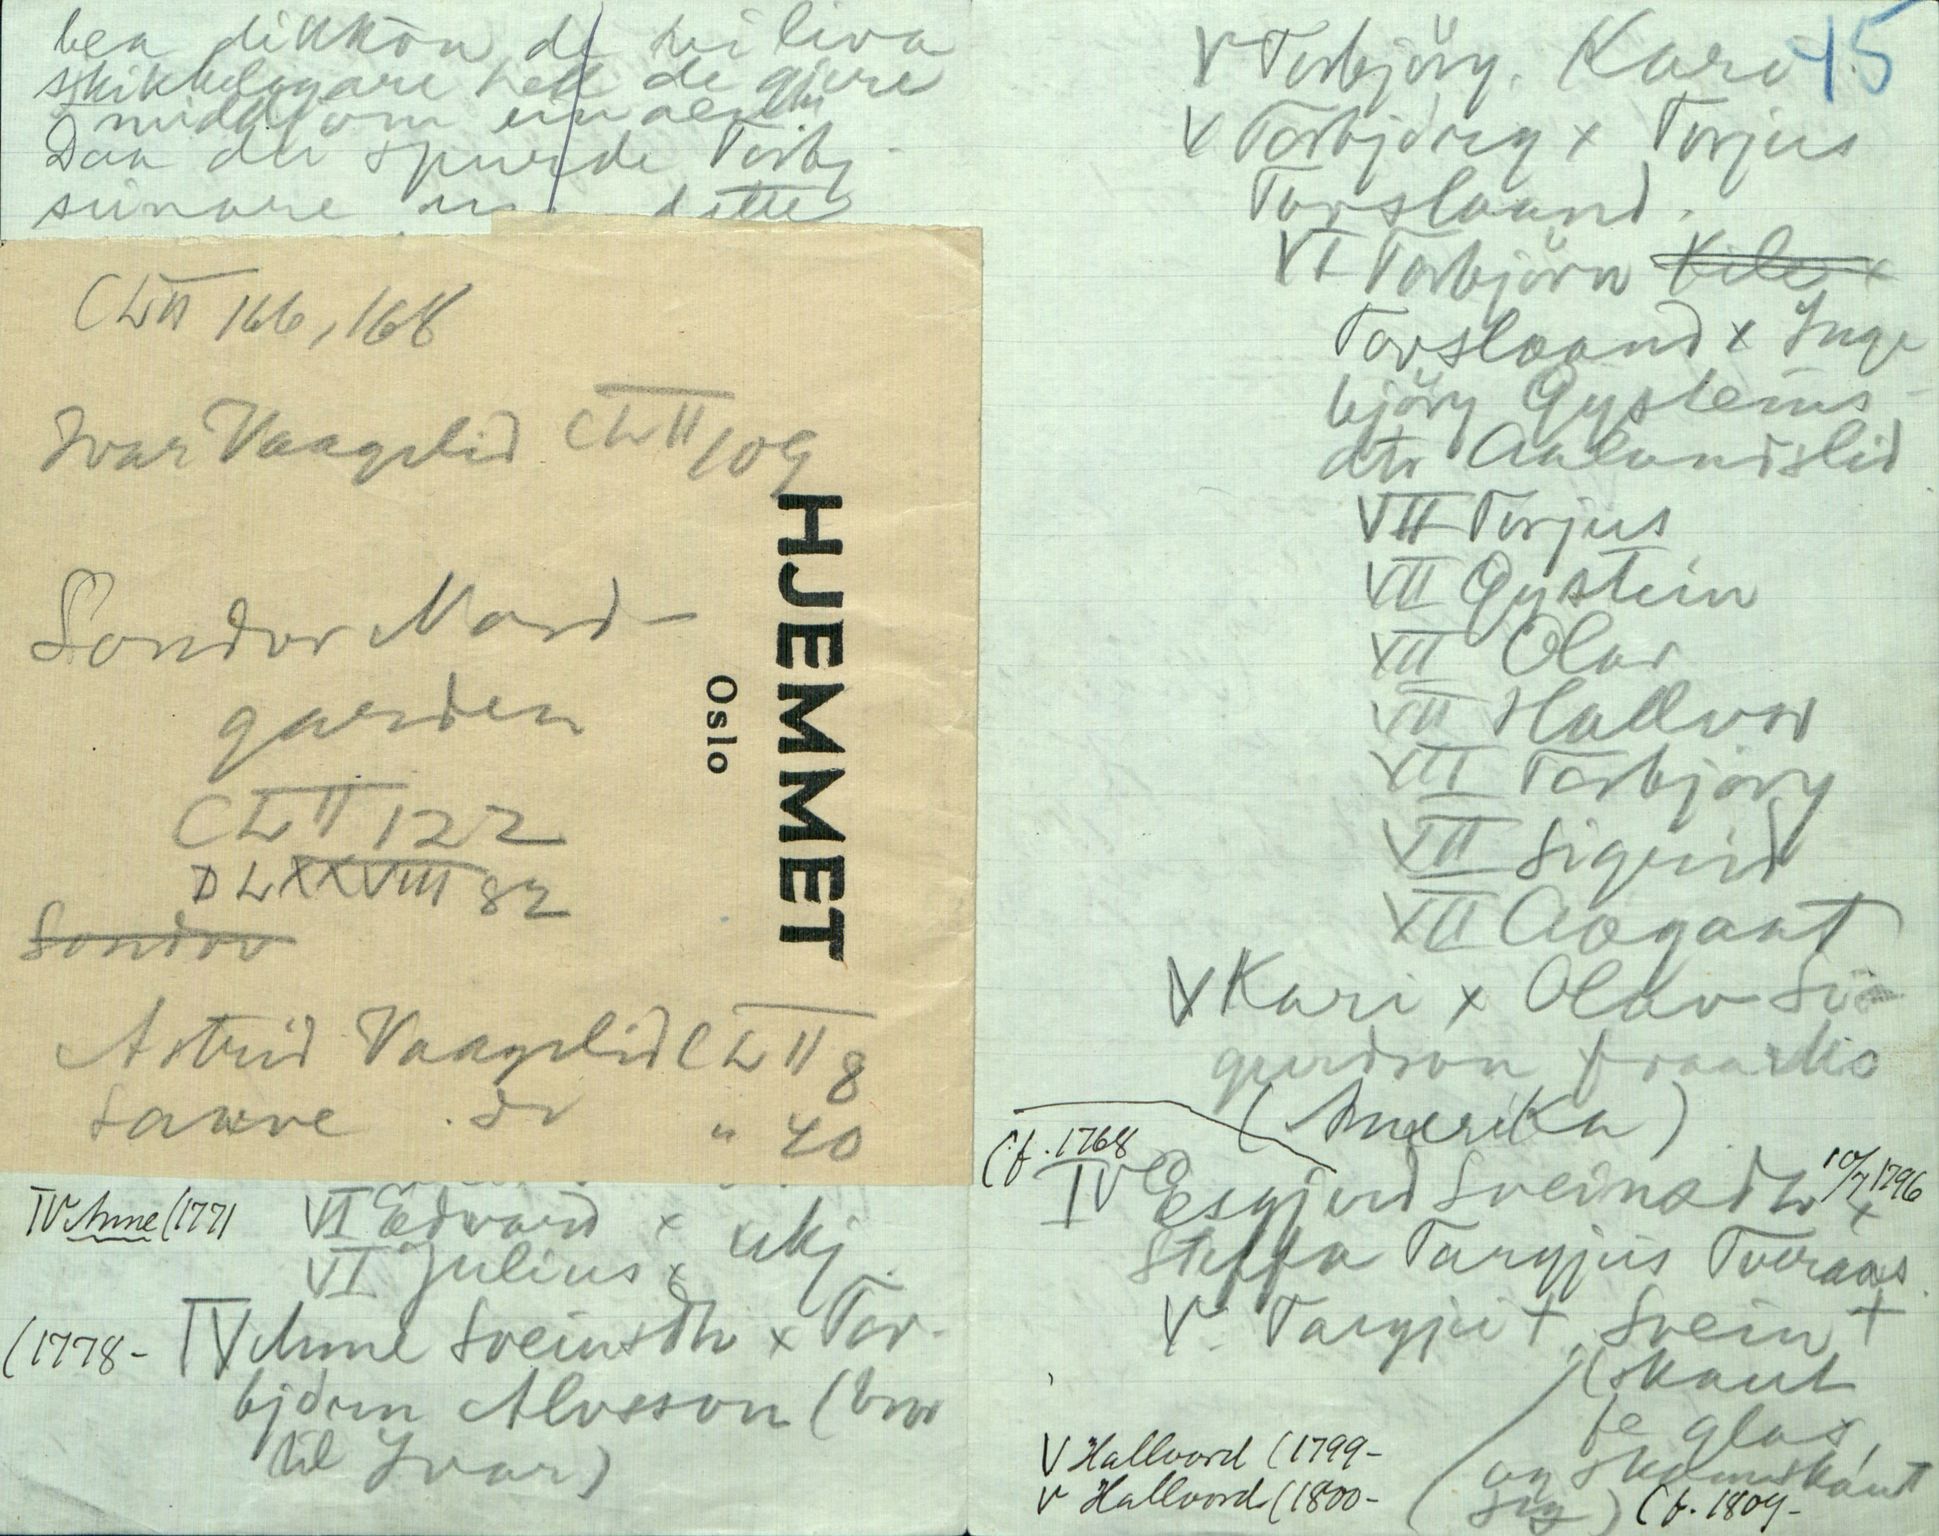 bea dikkon de
skikkelegare helle de gjere
Daa dei spurde Torbj-
dette
CL II 166, 168
Ivar Vaagslid CL II 109
Sondov Nord-
garden
CL II 122
D L XXVIII 82
Sondov
Astrid Vaagslid CL II 8
" 40
HJEMMET
Oslo
IV Anne (1771
VI Edvard x
VI Julius x ukj.
(1778-
IV Anne Sveinsdtr x Tor-
björn Alvsson (bror
til Ivar)
45
V Torbjörg, Kari
V Torbjörg x Torjus
Torslaand.
VI Torbjörn Kile x
Torslaand x Inge
björg Öysteins-
dtr Aalandslid
VII Torjus
VII Öystein
VII Olav
VII Hallvor
VII Torbjörg
VII Sigurd
VII Aagaat
V Kari x Olav Si-
gurdson fraa Mo
(Amerika)
(f. 1768
IV Esgjerd Sveinsdtr 10/7 1796 x
Steffa Targjus Tveraas.
V Targjei +, Svein +
(skaut
se glas,
og skamskaut
seg)
(f. 1809-
V Hallvord (1799-
V Hallvord (1800-